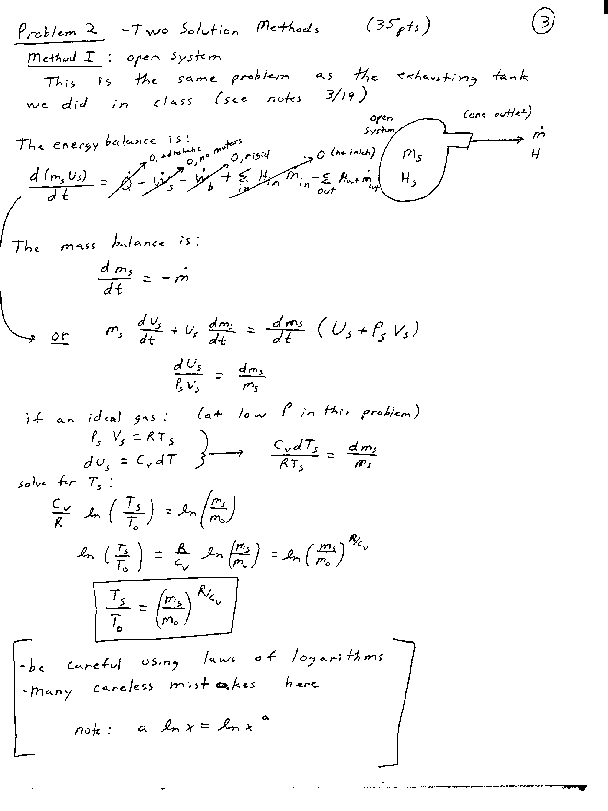 Problem 2 - Two Solution Methods (35pts) 3
Method I : open system
This is the same problem as the exhausting tank
we did in class (see notes 3/19)
open system
(one outlet)
ṁ
H
m_s
H_s
The energy balance is:
0, adiabatic 0, no motors 0, rigid 0 (no inlets)
d(m_s U_s)/dt = Q̇ - Ẇ_s - Ẇ_b + Σ_in H_in ṁ_in - Σ_out H_out ṁ_out
The mass balance is:
dm_s/dt = - ṁ
or m_s dU_s/dt + U_s dm_s/dt = dm_s/dt (U_s + P_s V_s)
dU_s/P_s V_s = dm_s/m_s
if an ideal gas: (at low P in this problem)
P_s V_s = RT_s
dU_s = C_v dT
C_v dT_s/RT_s = dm_s/m_s
solve for T_s:
C_v/R ln (T_s/T_o) = ln (m_s/m_o)
ln (T_s/T_o) = R/C_v ln (m_s/m_o) = ln (m_s/m_o)^R/C_v
T_s/T_o = (m_s/m_o)^R/C_v
- be careful using laws of logarithms
- many careless mistakes here
note: a ln x = ln x^a